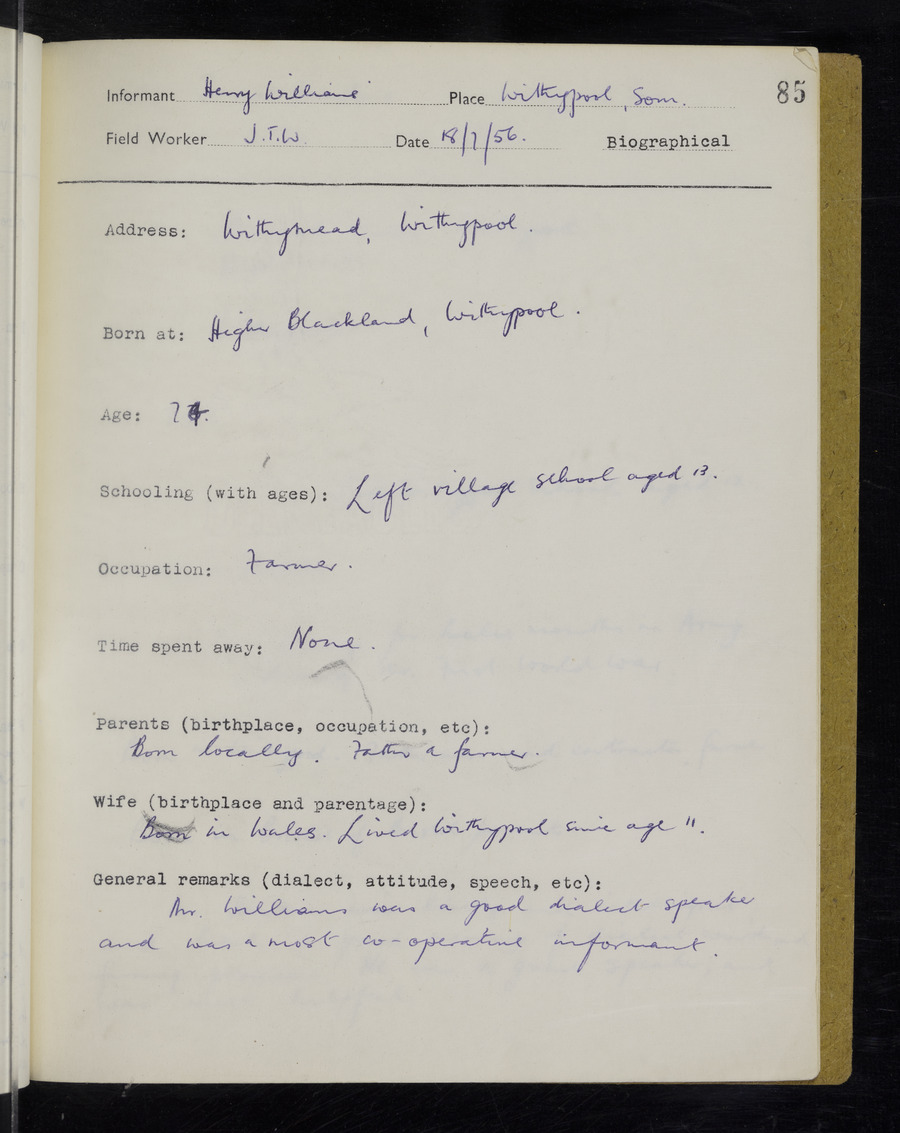 Informant Henry Williams Place Withypool, Som. 85
Field Worker J.T.W. Date 18/7/56. Biographical
Address: Withymead, Withypool.
Born at: Higher Blackland, Withypool.
Age:
Schooling (with ages): Left village school aged 13.
Occupation: Farmer.
Time spent away: None.
Parents (birthplace, occupation, etc):
Born locally. Father a farmer.
Wife (birthplace and parentage):
Born in Wales. Lived Withypool since age 11.
General remarks (dialect, attitude, speech, etc):
Mr. Williams was a good dialect speaker
and was a most co-operative informant.